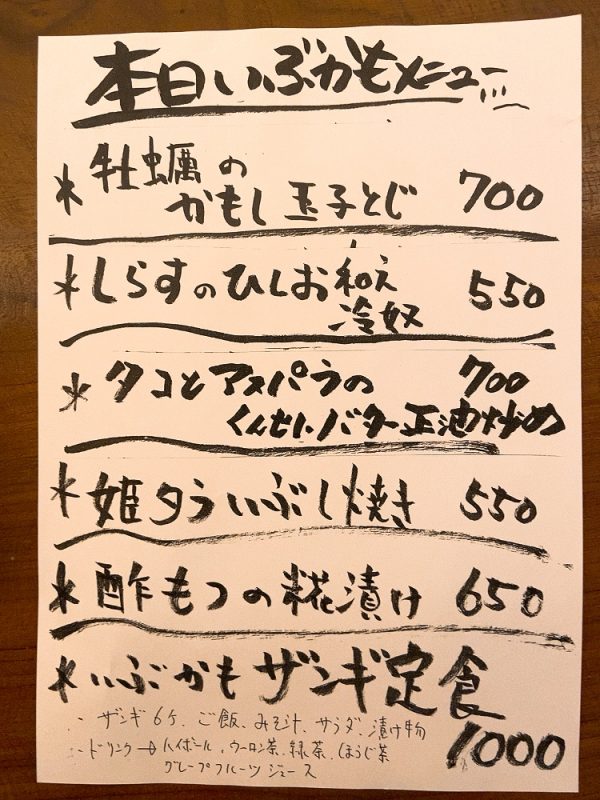 本日いぶかもメニュー
* 牡蠣の
かもし玉子とじ 700
* しらすのひしお和え
冷奴 550
* タコとアスパラの 700
くんせいバター正油炒め
* 姫タラいぶし焼き 550
* 酢もつの糀漬け 650
* いぶかもザンギ定食
・ザンギ6ケ、ご飯、みそ汁、サラダ、漬け物
1000
・ドリンク→ハイボール、ウーロン茶、緑茶、ほうじ茶
グレープフルーツジュース